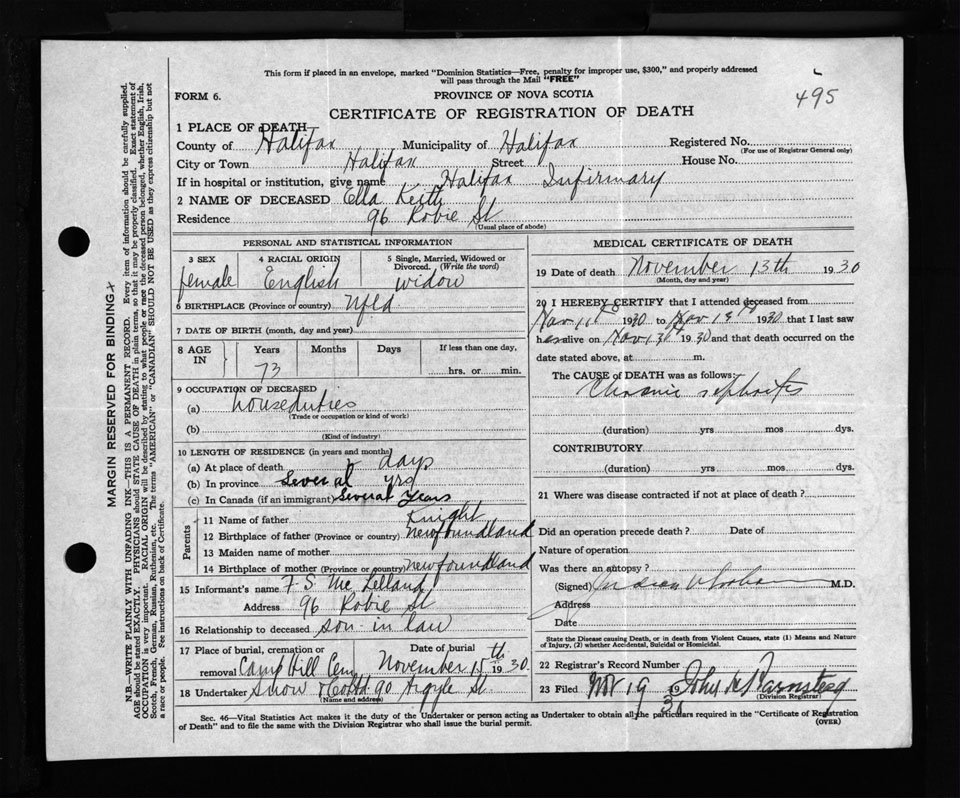 This form if placed in an envelope, marked "Dominion Statistics—Free, penalty for improper use, $300," and properly addressed
will pass through the Mail "FREE"
FORM 6.
PROVINCE OF NOVA SCOTIA
495
CERTIFICATE OF REGISTRATION OF DEATH
1 PLACE OF DEATH
County of Halifax Municipality of Halifax Registered No.
(For use of Registrar General only)
City or Town Halifax Street House No.
If in hospital or institution, give name Halifax Infirmary
2 NAME OF DECEASED Ella Keith
Residence 96 Robie St
(Usual place of abode)
PERSONAL AND STATISTICAL INFORMATION
3 SEX 4 RACIAL ORIGIN 5 Single, Married, Widowed or Divorced. (Write the word)
female English widow
6 BIRTHPLACE (Province or country) Nfld
7 DATE OF BIRTH (month, day and year)
8 AGE IN Years Months Days If less than one day,
73 hrs. or min.
9 OCCUPATION OF DECEASED
(a) houseduties
(Trade or occupation or kind of work)
(b)
(Kind of industry)
10 LENGTH OF RESIDENCE (in years and months)
(a) At place of death days
(b) In province several yrs
(c) In Canada (if an immigrant) several years
Parents
11 Name of father Knight
12 Birthplace of father (Province or country) newfoundland
13 Maiden name of mother
14 Birthplace of mother (Province or country) newfoundland
15 Informant's name F S Mc Lelland
Address 96 Robie St
16 Relationship to deceased son-in law
17 Place of burial, cremation or Date of burial
removal Camp Hill Cem November 15th 1930.
18 Undertaker Snow & Co Ltd 90 Argyle St.
(Name and address)
MEDICAL CERTIFICATE OF DEATH
19 Date of death November 13th 1930
(Month, day and year)
20 I HEREBY CERTIFY that I attended deceased from
Nov 11th 1930 to Nov 13th 1930 that I last saw
her alive on Nov 13th 1930 and that death occurred on the
date stated above, at m.
The CAUSE of DEATH was as follows:
Chronic nephritis
(duration) yrs mos dys.
CONTRIBUTORY
(duration) yrs mos dys.
21 Where was disease contracted if not at place of death?
Did an operation precede death? Date of
Nature of operation
Was there an autopsy?
(Signed) M.D.
Address
Date
State the Disease causing Death, or in death from Violent Causes, state (1) Means and Nature
of Injury, (2) whether Accidental, Suicidal or Homicidal.
22 Registrar's Record Number
23 Filed Nov 19 1930 John
(Division Registrar)
Sec. 46—Vital Statistics Act makes it the duty of the Undertaker or person acting as Undertaker to obtain all the particulars required in the "Certificate of Registration
of Death" and to file the same with the Division Registrar who shall issue the burial permit.
(OVER)
MARGIN RESERVED FOR BINDING
N.B.—WRITE PLAINLY WITH UNFADING INK—THIS IS A PERMANENT RECORD. Every item of information should be carefully supplied.
AGE should be stated EXACTLY. PHYSICIANS should STATE CAUSE OF DEATH in plain terms, so that it may be properly classified. Exact statement of
OCCUPATION is very important. RACIAL ORIGIN will be described by stating to what people or race the deceased person belonged, whether English, Irish,
Scotch, French, German, Russian, Ruthenian, etc. The terms "AMERICAN" or "CANADIAN" SHOULD NOT BE USED as they express citizenship but not
a race or people. See instructions on back of Certificate.